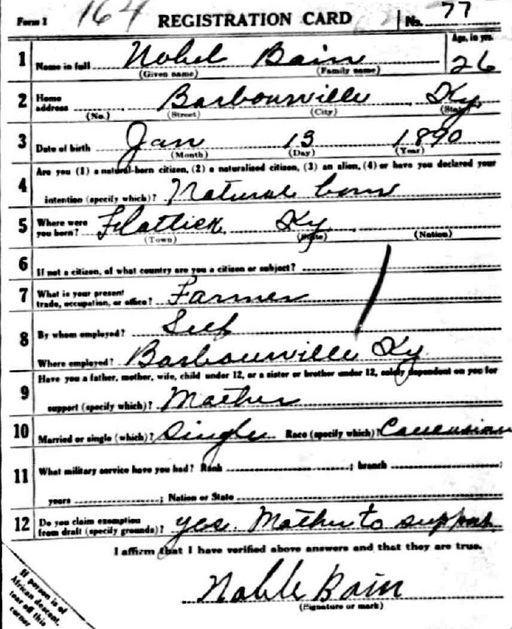 Form 1 164 REGISTRATION CARD No. 77
1 Name in full Nobel Bain Age, in yrs. 26
(Given name) (Family name)
2 Home address Barbourville Ky
(No.) (Street) (City) (State)
3 Date of birth Jan 13 1890
(Month) (Day) (Year)
Are you (1) a natural-born citizen, (2) a naturalized citizen, (3) an alien, (4) or have you declared your
4 intention (specify which)? Natural born
5 Where were you born? Flatlick Ky
(Town) (State) (Nation)
6 If not a citizen, of what country are you a citizen or subject?
7 What is your present trade, occupation, or office? Farmer
8 By whom employed? Self
Where employed? Barbourville Ky
Have you a father, mother, wife, child under 12, or a sister or brother under 12, solely dependent on you for
9 support (specify which)? Mother
10 Married or single (which)? Single Race (specify which)? Caucasian
11 What military service have you had? Rank ; branch
years ; Nation or State
12 Do you claim exemption from draft (specify grounds)? yes. Mother to support
I affirm that I have verified above answers and that they are true.
Noble Bain
(Signature or mark)
If person is of
African descent,
tear off this
corner